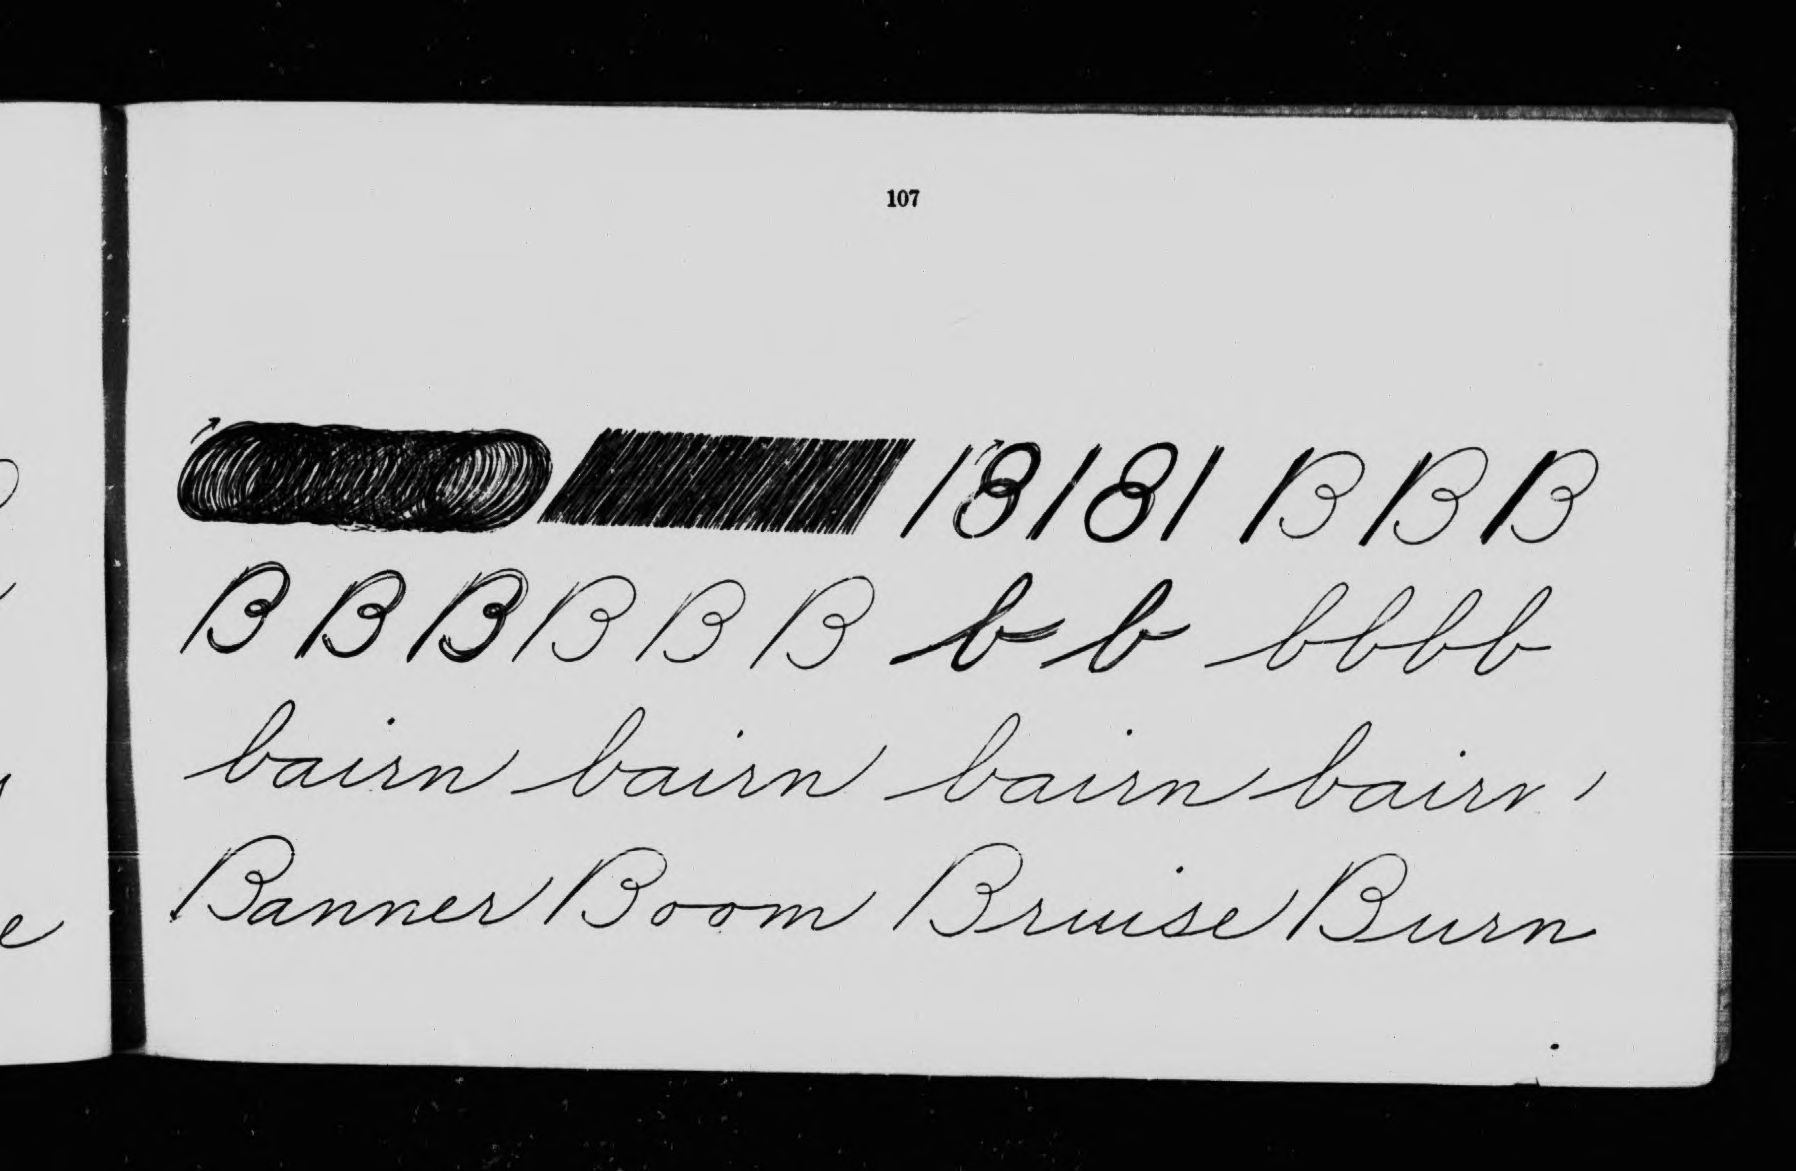 107
/8/8/ B B B
B B B B B B b b bbbb
bairn bairn bairn bairn
Banner Boom Bruise Burn
e